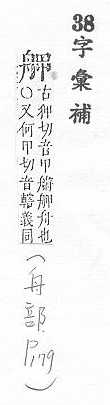 38 字彙補
舺
古狎切音甲舺舟也
○又何甲切音轄義同
(舟部, P179)